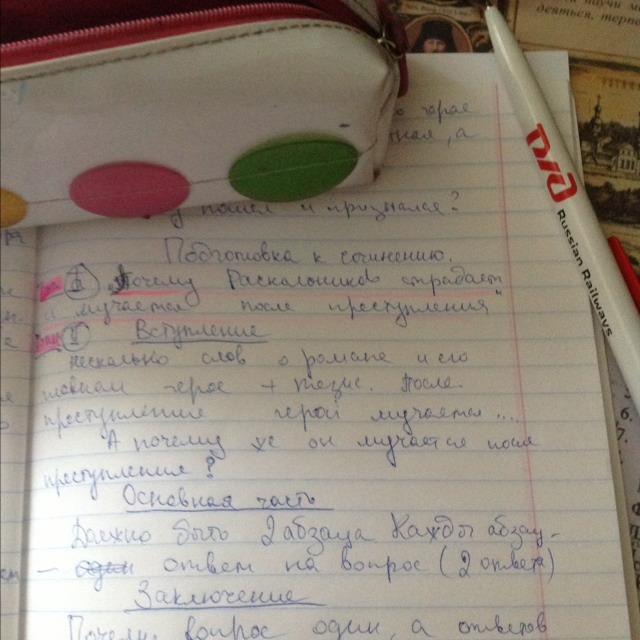 деяться, терп
герое
пошел и признался?
Подготовка к сочинению.
I Почему Раскольников страдает
и мучается после преступления"
II Вступление
несколько слов о романе и его
главном герое + тезис. После
преступление герой мучается...
А почему же он мучается после
преступление?
Основная часть
Должно быть 2 абзаца Кажды абзац-
- один ответ на вопрос (2 ответа)
Заключение
Почему вопрос один, а ответов
РЖД
Russian Railways